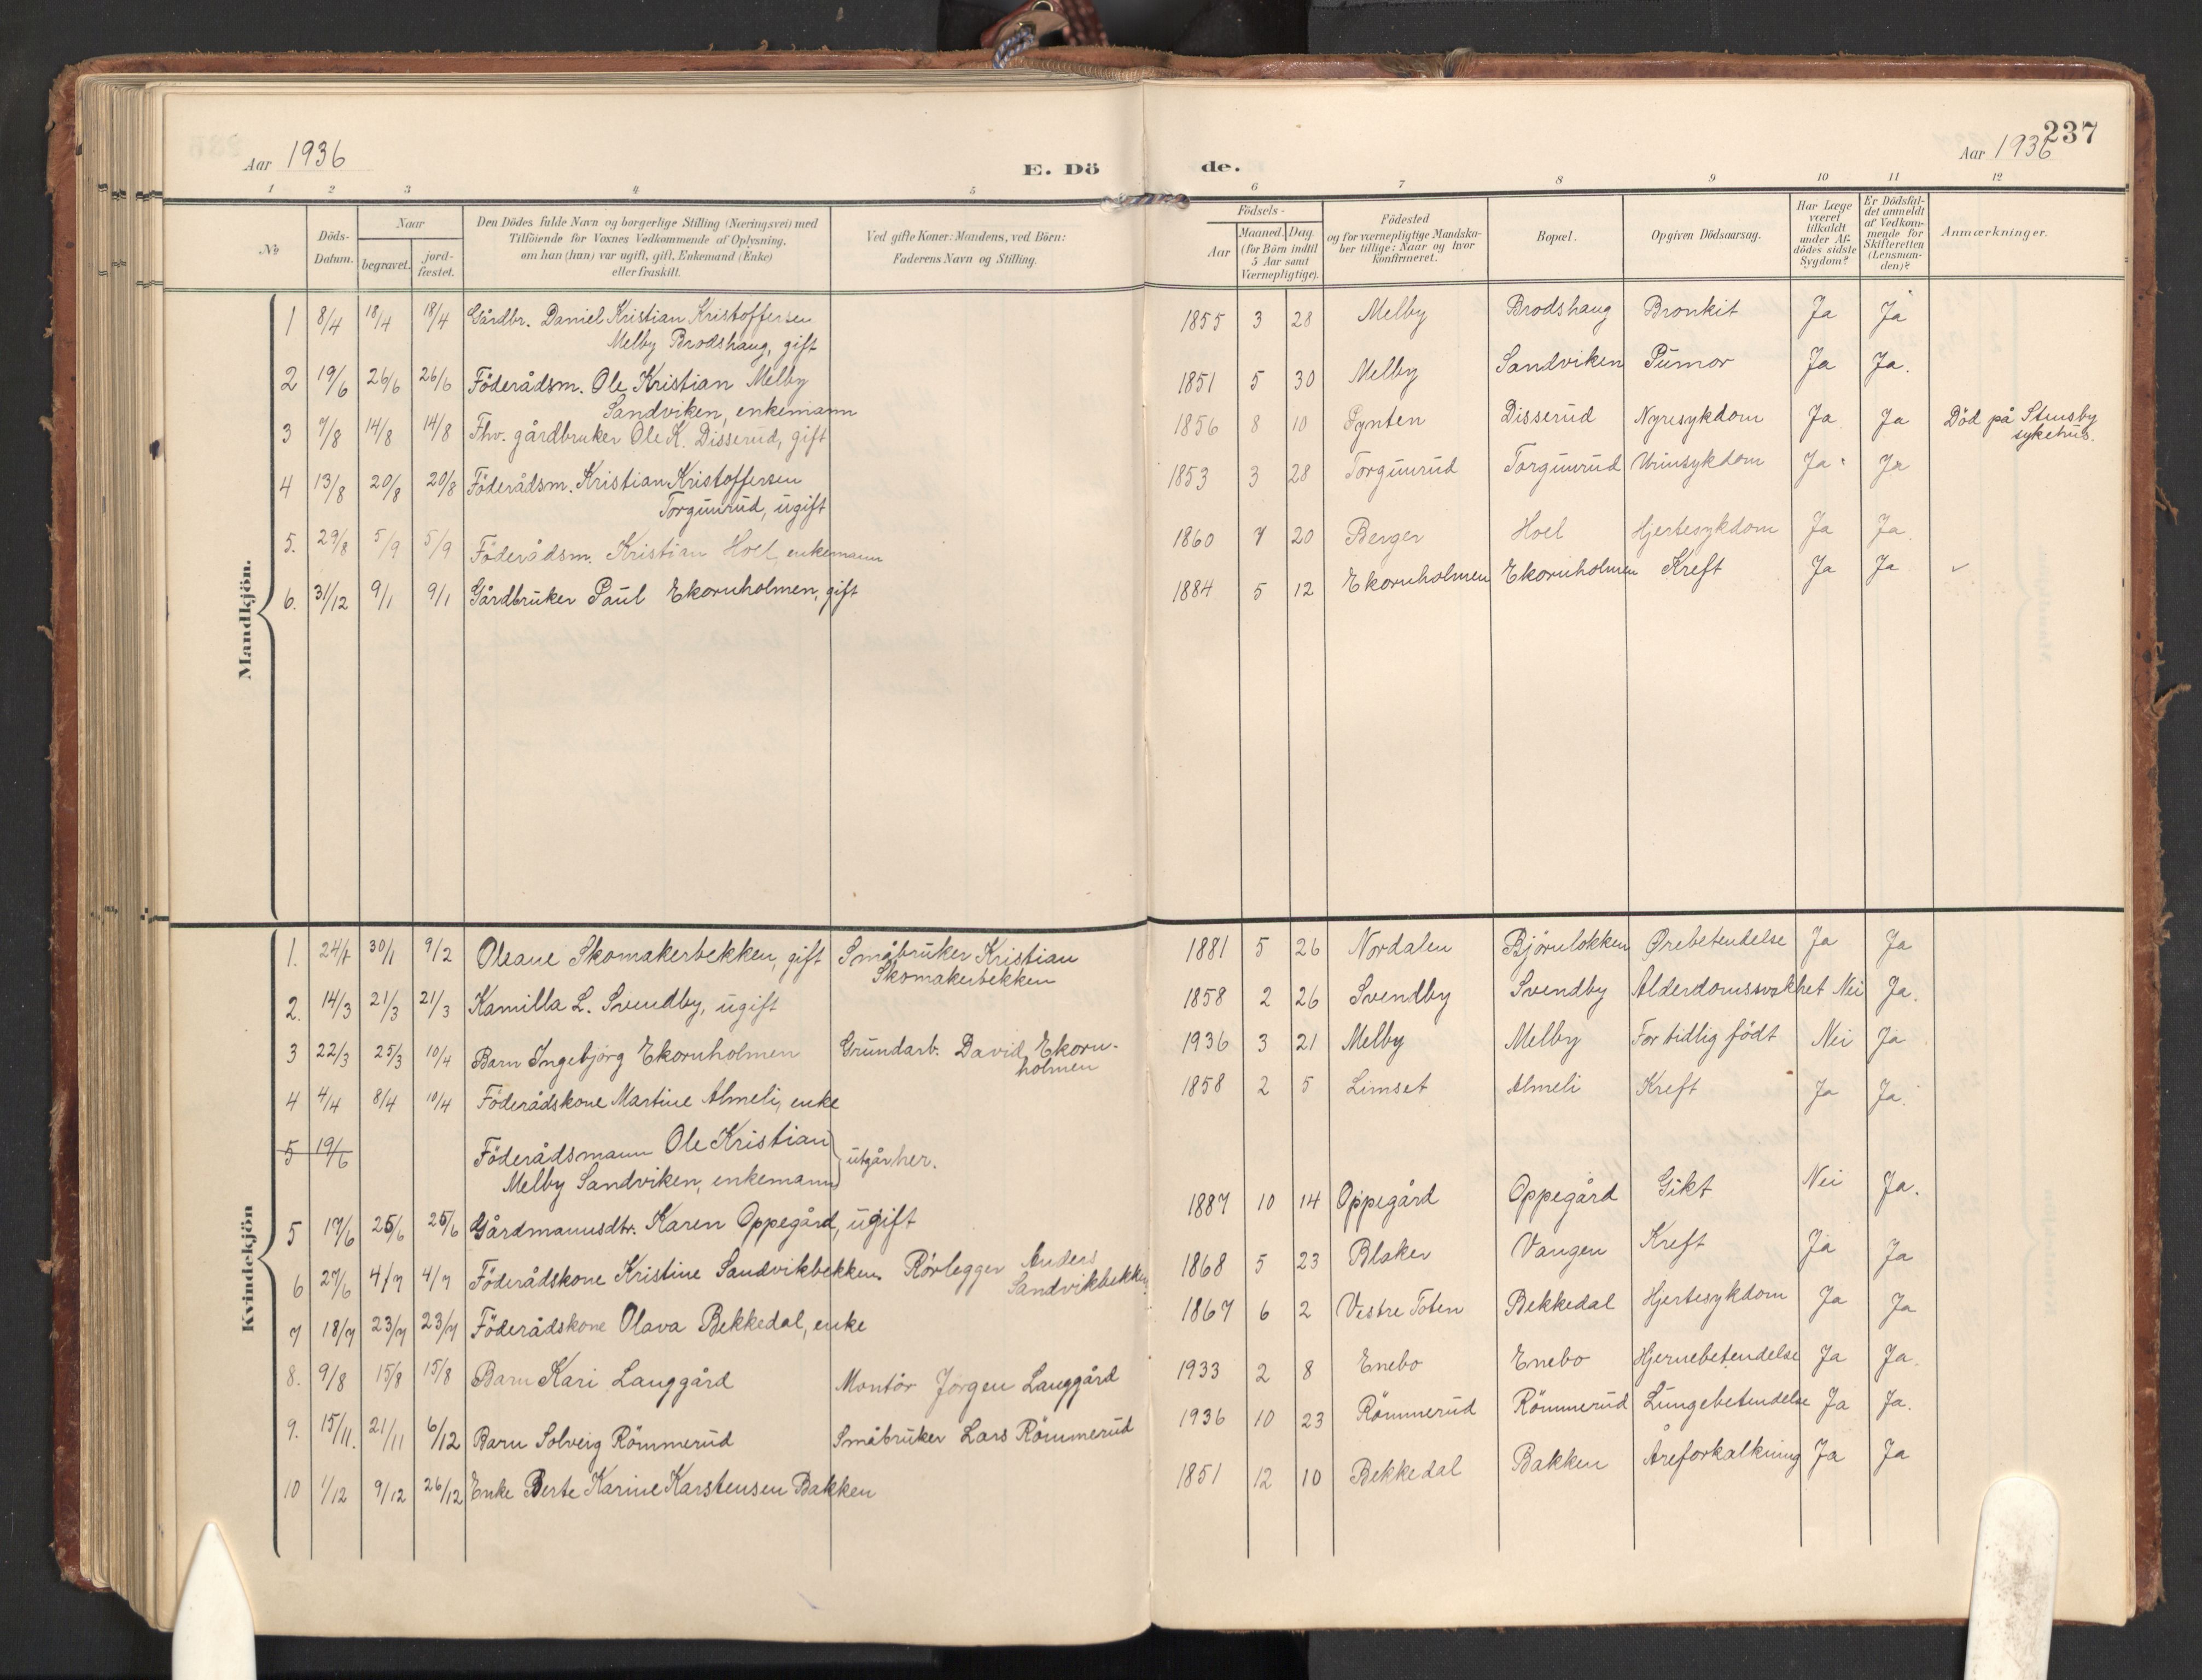 Aar 1936
E. Dö
de.
237
Aar 1936
1 2 3 4 5 6 7 8 9 10 11 12
No
Döds-
Datum.
Naar
begravet.
jord-
fæstet.
Den Dödes fulde Navn og borgerlige Stilling (Næringsvei) med
Tilföiende for Voxnes Vedkommende af Oplysning,
om han (hun) var ugift, gift, Enkemand (Enke)
eller fraskilt.
Ved gifte Koner: Mandens, ved Börn:
Faderens Navn og Stilling.
Födsels-
Aar
Maaned. Dag.
(for Börn indtil
5 Aar samt
Værnepligtige).
Födested
og for værnepligtige Mandska-
ber tillige: Naar og hvor
konfirmeret.
Bopæl.
Opgiven Dödsaarsag.
Har Læge
været
tilkaldt
under Af-
dödes sidste
Sygdom?
Er Dödsfal-
det anmeldt
af Vedkom-
mende for
Skifteretten
(Lensman-
den)?
Anmærkninger.
Mandkjön.
1 8/4 18/4 18/4 Gårdbr. Daniel Kristian Kristoffersen 1855 3 28 Melby Brodshaug Bronkit Ja Ja
Melby Brodshaug, gift
2 19/6 26/6 26/6 Föderådsm. Ole Kristian Melby 1851 5 30 Melby Sandviken Ja Ja.
Sandviken, enkemann
3 7/8 14/8 14/8 Fhv. gårdbruker Ole K. Disserud, gift 1856 8 10 Pynten Disserud Nyresykdom Ja Ja Död på Stensby
sykehus.
4 13/8 20/8 20/8 Föderådsm. Kristian Kristoffersen 1853 3 28 Torgunrud Torgunrud Urinsykdom Ja Ja
Torgunrud, ugift
5. 29/8 5/9 5/9 Föderådsm. Kristian Hoel, enkemann 1860 7 20 Berger Hoel Hjertesykdom Ja Ja.
6. 31/12 9/1 9/1 Gårdbruker Paul Ekornholmen, gift 1884 5 12 Ekornholmen Ekornholmen Kreft Ja Ja ✓
Kvindekjön
1. 24/1 30/1 9/2 Oleane Skomakerbekken, gift Småbruker Kristian 1881 5 26 Nordalen Björnlökken Ørebetendelse Ja Ja
Skomakerbekken
2. 14/3 21/3 21/3 Kamilla L. Svendby, ugift 1858 2 26 Svendby Svendby Alderdomssvakhet Nei Ja.
3 22/3 25/3 10/4 Barn Ingebjörg Ekornholmen Grundarb. David Ekorn- 1936 3 21 Melby Melby For tidlig födt Nei Ja
holmen
4 4/4 8/4 10/4 Föderådskone Martine Almeli, enke 1858 2 5 Limset Almeli Kreft Ja Ja.
5 19/6 Föderådsmann Ole Kristian
Melby Sandviken, enkemann utgår her.
5 17/6 25/6 25/6 Gårdmannsdtr. Karen Oppegård, ugift 1887 10 14 Oppegård Oppegård Gikt Nei Ja.
6 27/6 4/7 4/7 Föderådskone Kristine Sandvikbekken. Rörlegger Anders 1868 5 23 Blaker Vangen Kreft Ja Ja
Sandvikbekken
7 18/7 23/7 23/7 Föderådskone Olava Bekkedal, enke 1867 6 2 Vestre Toten Bekkedal Hjertesykdom Ja Ja
8. 9/8 15/8 15/8 Barn Kari Langgård Montör Jörgen Langgård 1933 2 8 Enebo Enebo Hjernebetendelse Ja Ja.
9. 15/11. 21/11 6/12 Barn Solveig Römmerud Småbruker Lars Römmerud 1936 10 23 Römmerud Römmerud Lungebetendelse Ja Ja.
10 1/12 9/12 26/12 Enke Berte Karine Karstensen Bakken 1851 12 10 Bekkedal Bakken Åreforkalkning Ja Ja